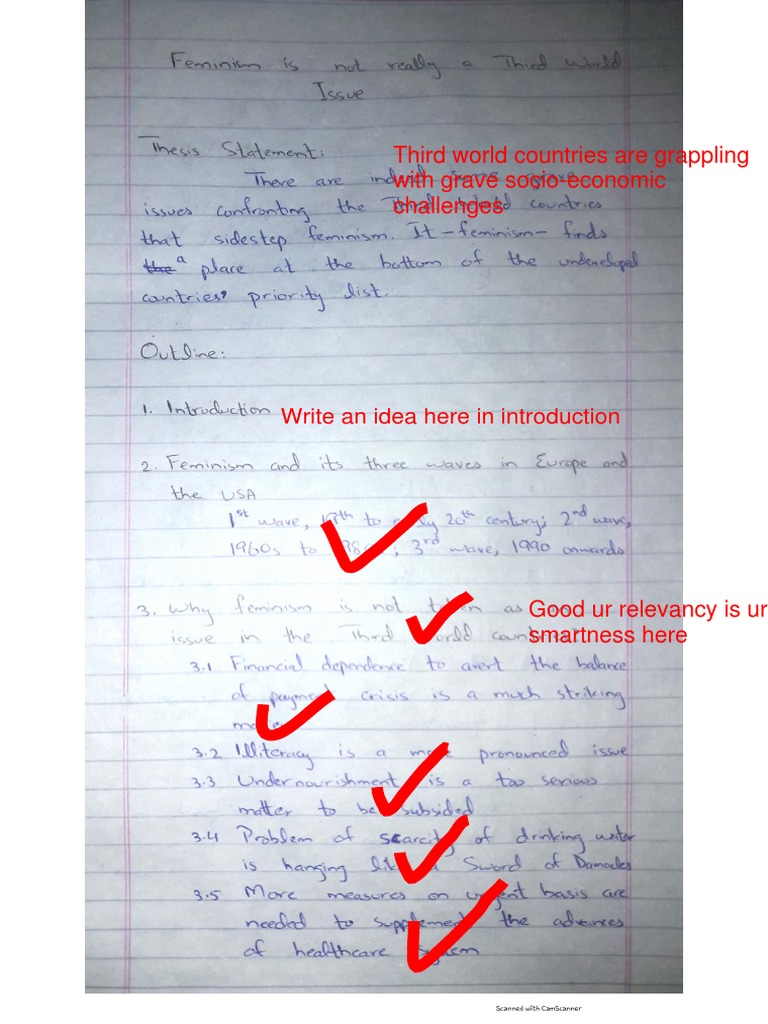 Feminism is not really a Third World
Issue
Thesis Statement:
Third world countries are grappling
with grave socio-economic
challenges
There are
issues confronting the Third World countries
that sidestep feminism. It -feminism- finds
the a place at the bottom of the undeveloped
countries' priority list.
Outline:
1. Introduction
Write an idea here in introduction
2. Feminism and its three waves in Europe and
the USA
1st wave, to 20th century; 2nd wave,
1960s to ; 3rd wave, 1990 onwards
3. Why feminism is not taken as
Good ur relevancy is ur
smartness here
issue in the Third World
3.1 Financial dependence to avert the balance
of payment crisis is a much striking
3.2 Illiteracy is a more pronounced issue
3.3 Undernourishment is a too serious
matter to be subsided
3.4 Problem of scarcity of drinking water
is hanging like a Sword of Damocles
3.5 More measures on urgent basis are
needed to supplement the advances
of healthcare system
Scanned with CamScanner